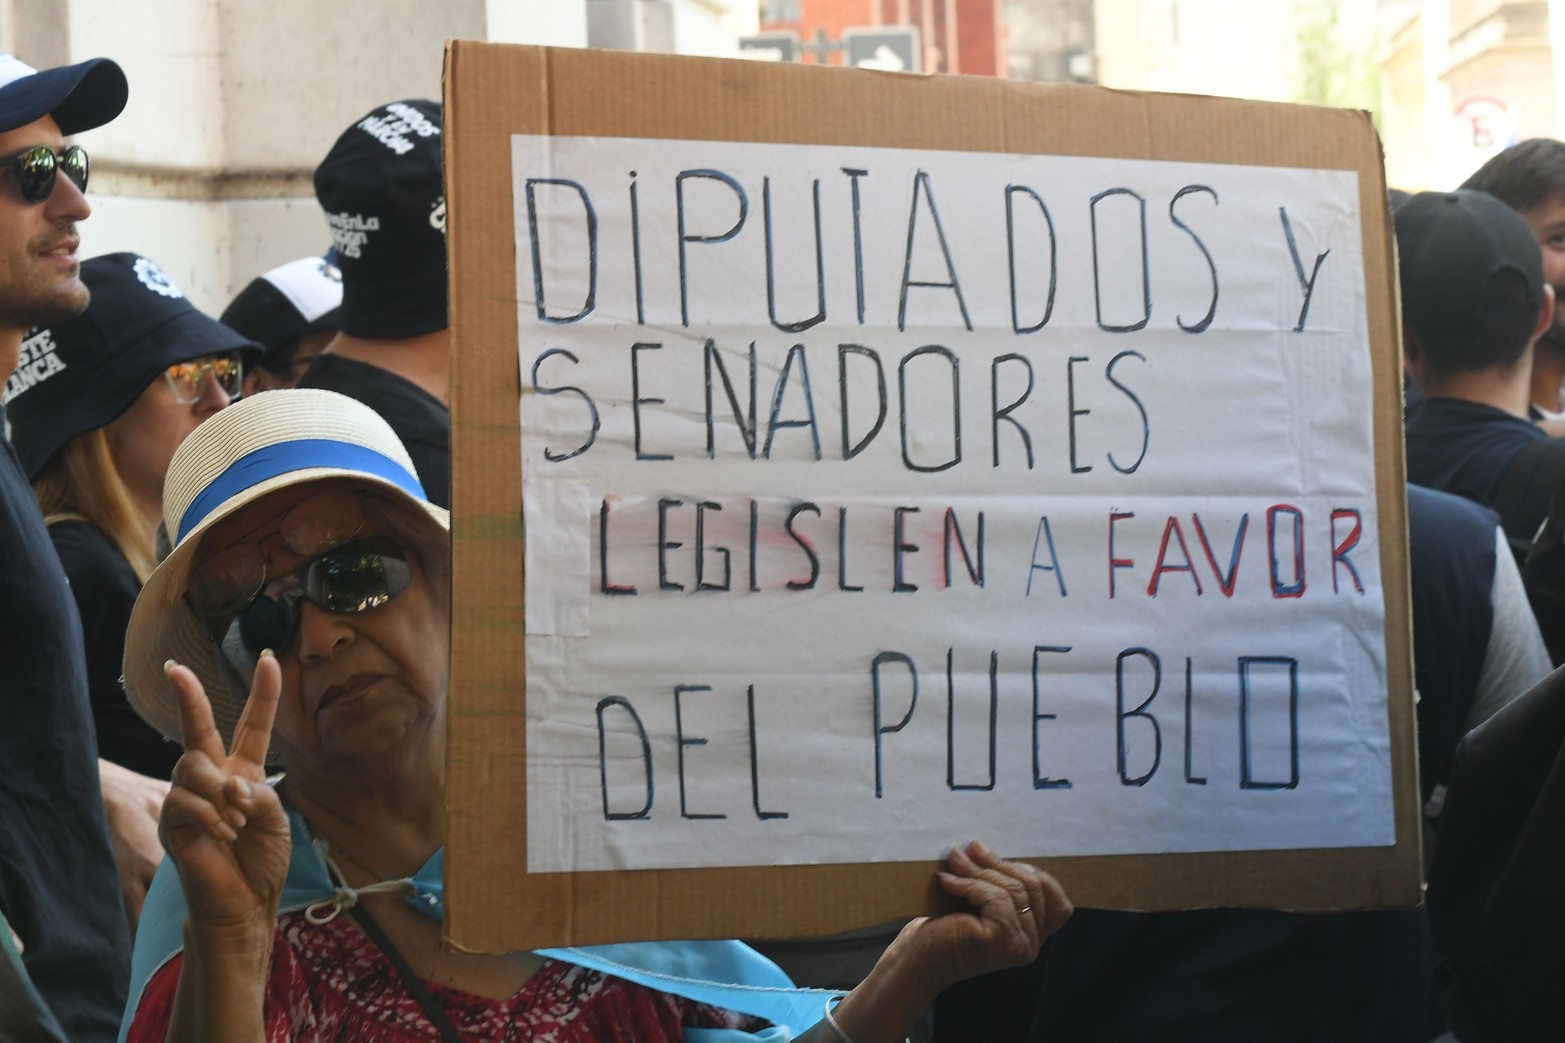 DiPUTADOS y
SENADORES
LEGISLEN A FAVOR
DEL PUEBLO